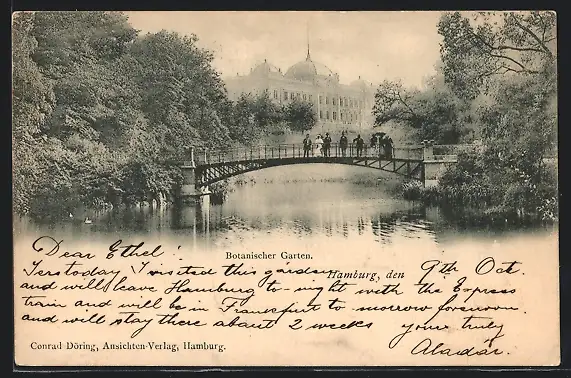 Botanischer Garten.
Dear Ethel!
Hamburg, den 9th Oct.
Yerstoday I visited this garden
and will leave Hamburg to-night with the Express
train and will be in Frankfurt to morrow forenoon.
and will stay there about 2 weeks
yours truly
Aladár.
Conrad Döring, Ansichten-Verlag, Hamburg.